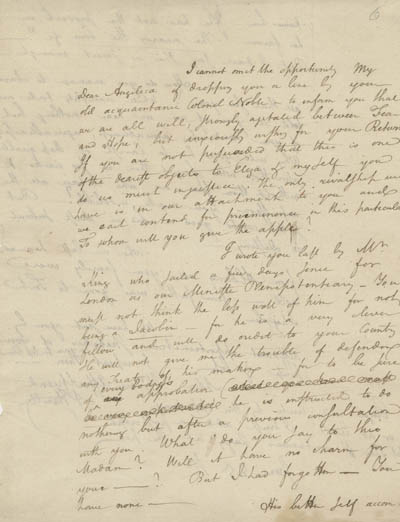 6
I cannot omit the opportunity My
Dear Angelica of dropping you a line by your
old acquaintance Colonel Noble to inform you that
we are all well, strongly agitated between Fear
and Hope, but anxiously wishing for your Return
If you are not persuaded that this is one
of the dearest objects to Eliza & myself you
do us much injustice. The only rivalship we
have is in our attachment to you and
we each contend for preeminence in this particular
To whom will you give the apple?
I wrote you last by Mr
King who sailed a few days since for
London as our Minister Plenipotentiary — You
must not think the less well of him for not
being a Jacobin — for he is a very clever
fellow and will do credit to your Country
He will not give me the trouble of defending
any Treaty of his making — for to be sure
of every body's approbation
he is instructed to do
nothing but after a previous consultation
with you. What do you say to this
Madam? Will it have no charm for
your — ? But I had forgotten — You
have none —
His better self accom